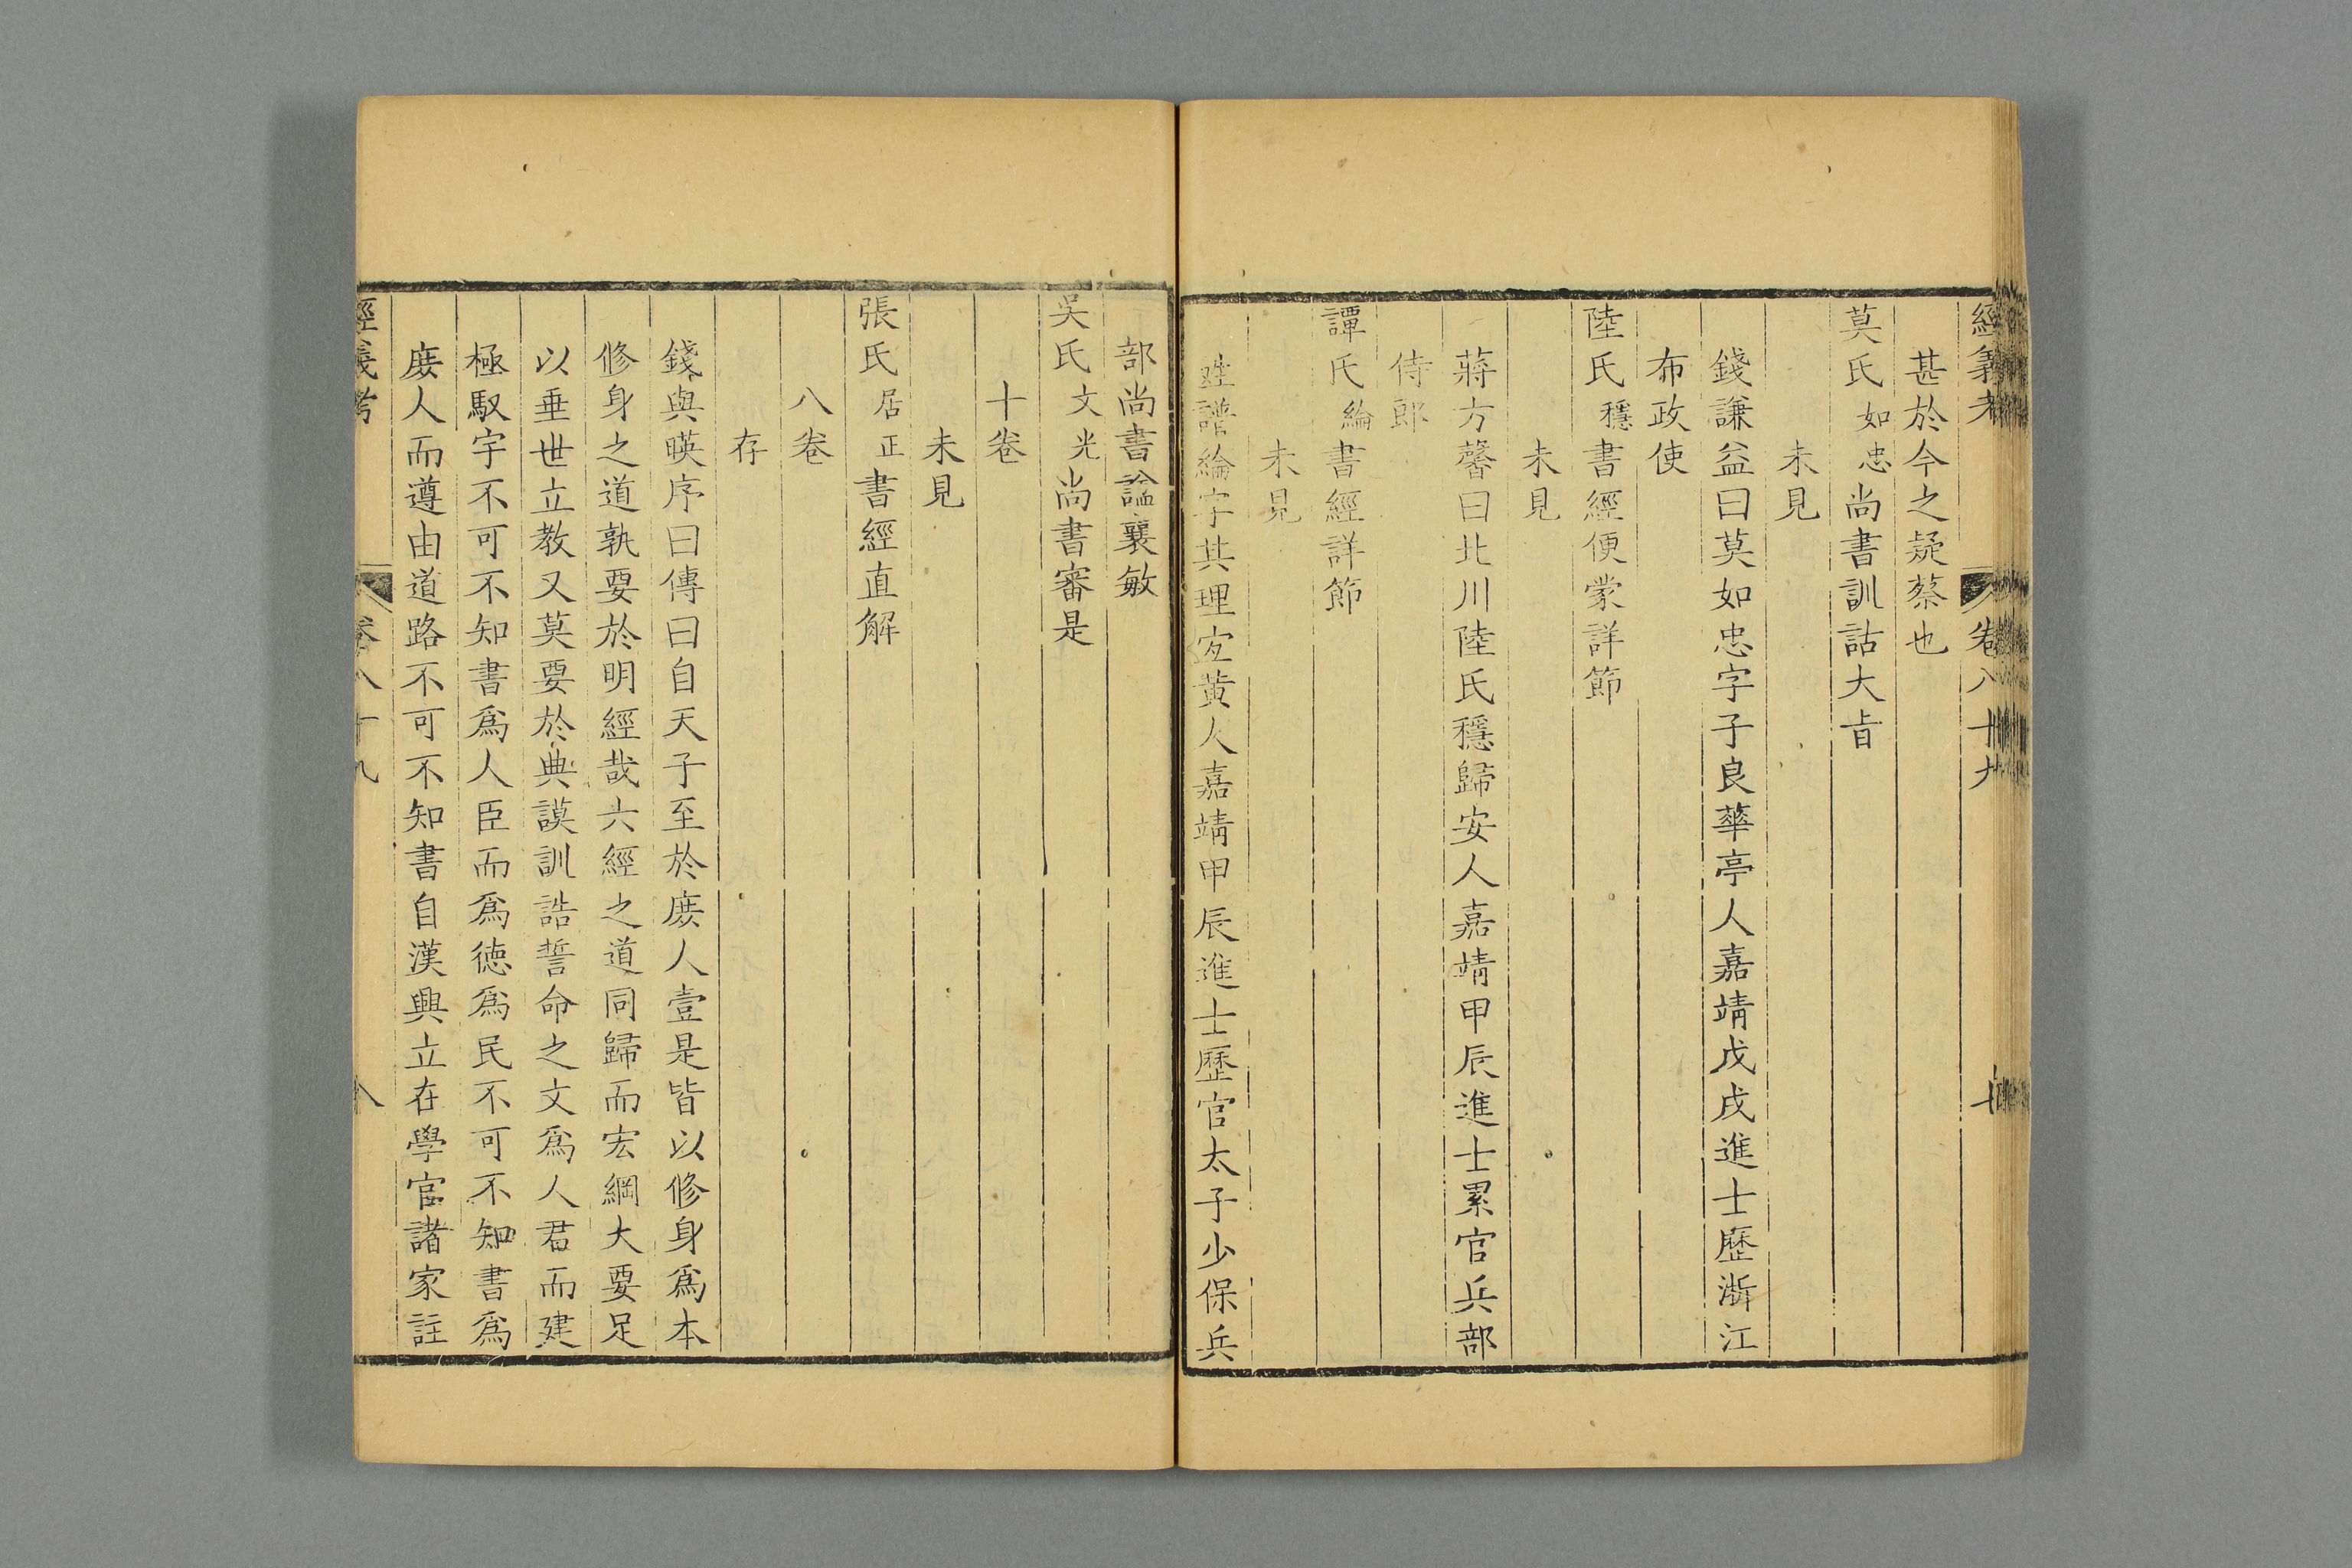 經義考 卷八十九 七
甚於今之疑蔡也
莫氏如忠尚書訓詁大旨
未見
錢謙益曰莫如忠字子良華亭人嘉靖戊戌進士歷浙江
布政使
陸氏穩書經便蒙詳節
未見
蔣方馨曰北川陸氏穩歸安人嘉靖甲辰進士累官兵部
侍郎
譚氏綸書經詳節
未見
姓譜綸字其理宜黃人嘉靖甲辰進士歷官太子少保兵
部尚書諡襄敏
吳氏文光尚書審是
十卷
未見
張氏居正書經直解
八卷
存
錢與暎序曰傳曰自天子至於庻人壹是皆以修身爲本
修身之道孰要於明經哉六經之道同歸而宏綱大要足
以垂世立教又莫要於典謨訓誥誓命之文爲人君而建
極馭宇不可不知書爲人臣而爲徳爲民不可不知書爲
庻人而遵由道路不可不知書自漢興立在學官諸家註
經義考 卷八十九 八